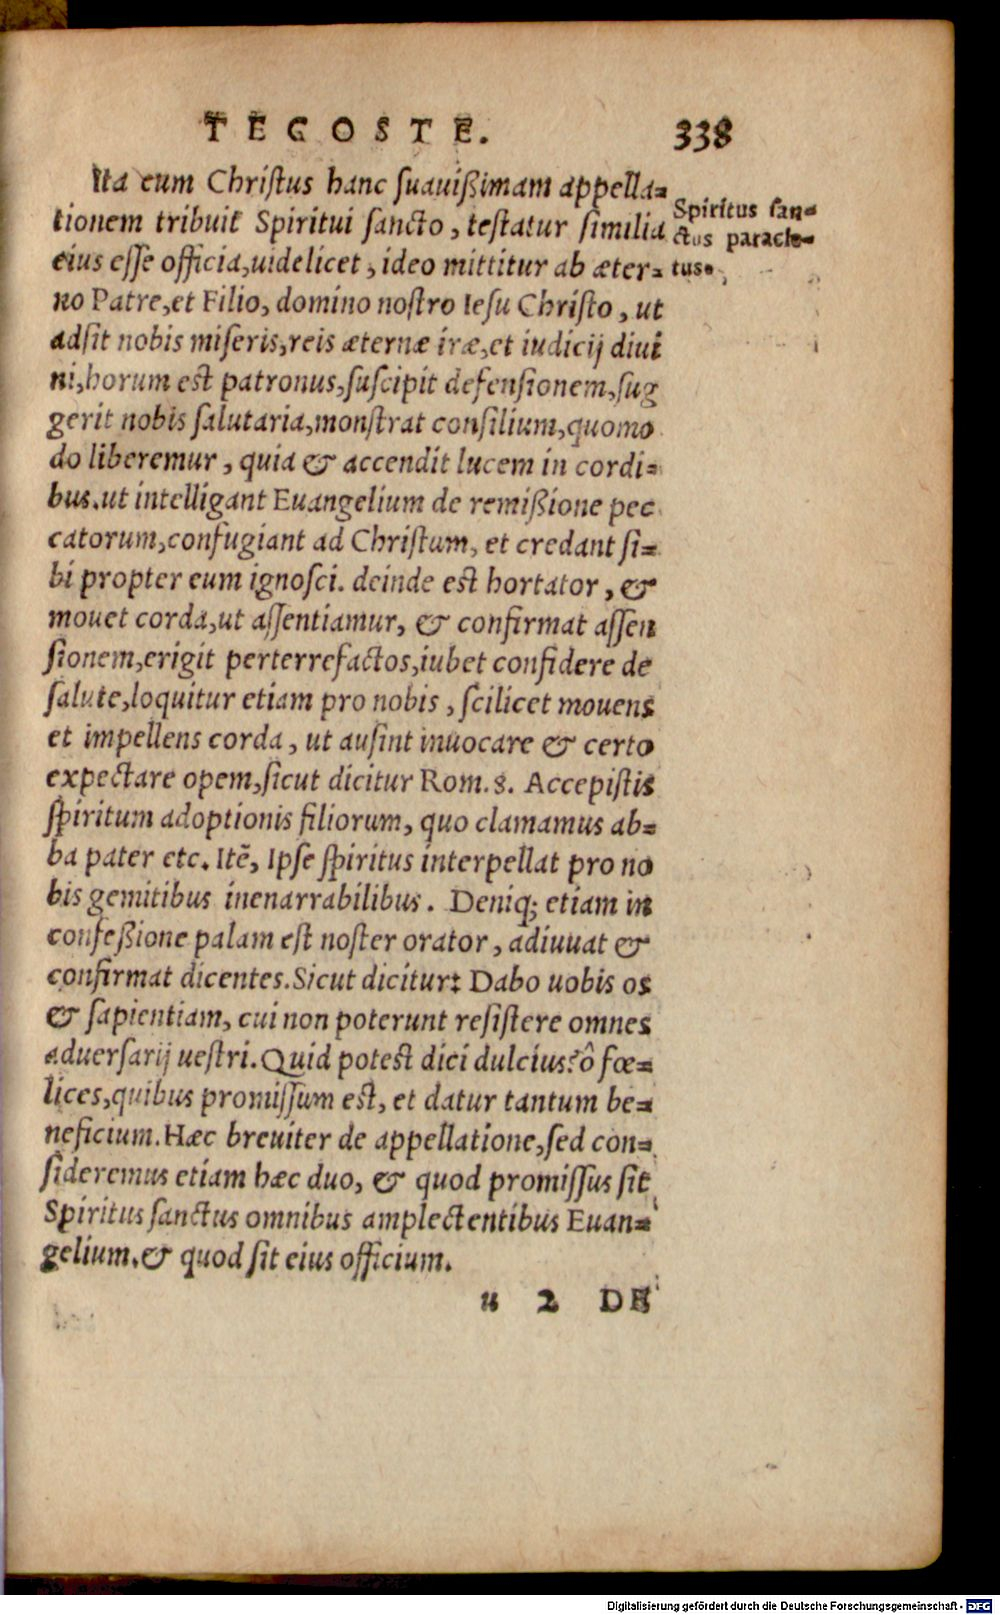 TECOSTE. 338
Ita cum Christus hanc suauißimam appella=
tionem tribuit Spiritui sancto, testatur similia
Spiritus san=
ctus paracle=
tus.
eius esse officia, uidelicet, ideo mittitur ab æter=
no Patre, et Filio, domino nostro Iesu Christo, ut
adsit nobis miseris, reis æternæ iræ, et iudicij diui
ni, horum est patronus, suscipit defensionem, sug
gerit nobis salutaria, monstrat consilium, quomo
do liberemur, quia & accendit lucem in cordi=
bus. ut intelligant Euangelium de remißione pec
catorum, confugiant ad Christum, et credant si=
bi propter eum ignosci. deinde est hortator, &
mouet corda, ut assentiamur, & confirmat assen
sionem, erigit perterrefactos, iubet confidere de
salute, loquitur etiam pro nobis, scilicet mouens
et impellens corda, ut ausint inuocare & certo
expectare opem, sicut dicitur Rom. 8. Accepistis
spiritum adoptionis filiorum, quo clamamus ab=
ba pater etc. Itẽ, Ipse spiritus interpellat pro no
bis gemitibus inenarrabilibus. Deniq; etiam in
confeßione palam est noster orator, adiuuat &
confirmat dicentes. Sicut dicitur: Dabo uobis os
& sapientiam, cui non poterunt resistere omnes
aduersarij uestri. Quid potest dici dulcius? ô fœ=
lices, quibus promissum est, et datur tantum be=
neficium. Hæc breuiter de appellatione, sed con=
sideremus etiam hæc duo, & quod promissus sit
Spiritus sanctus omnibus amplectentibus Euan=
gelium. & quod sit eius officium.
u 2 DE
Digitalisierung gefördert durch die Deutsche Forschungsgemeinschaft - DFG